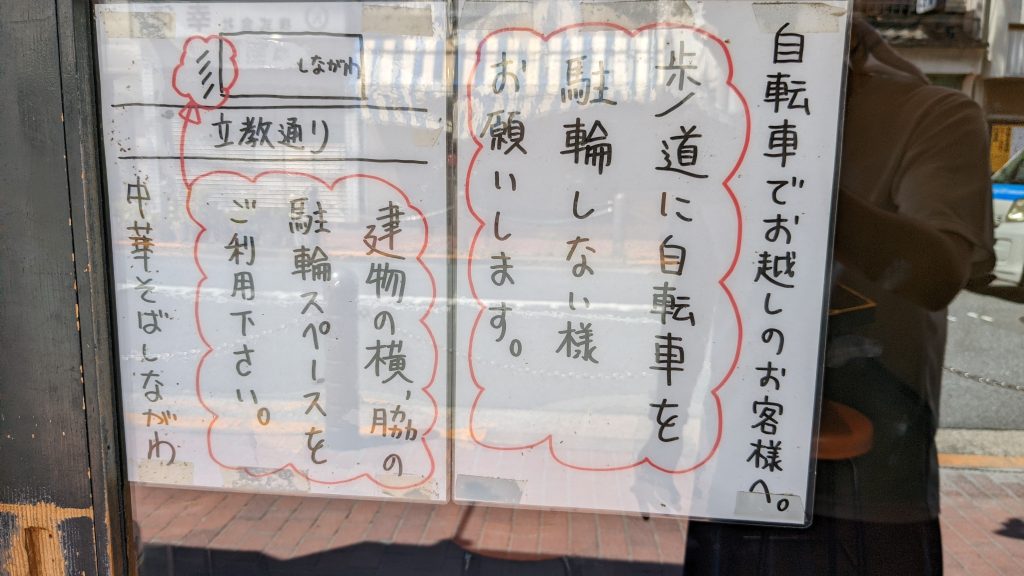 自転車でお越しのお客様へ。
歩道に自転車を
駐輪しない様
お願いします。
しながわ
立教通り
建物の横、脇の
駐輪スペースを
ご利用下さい。
中華そばしながわ